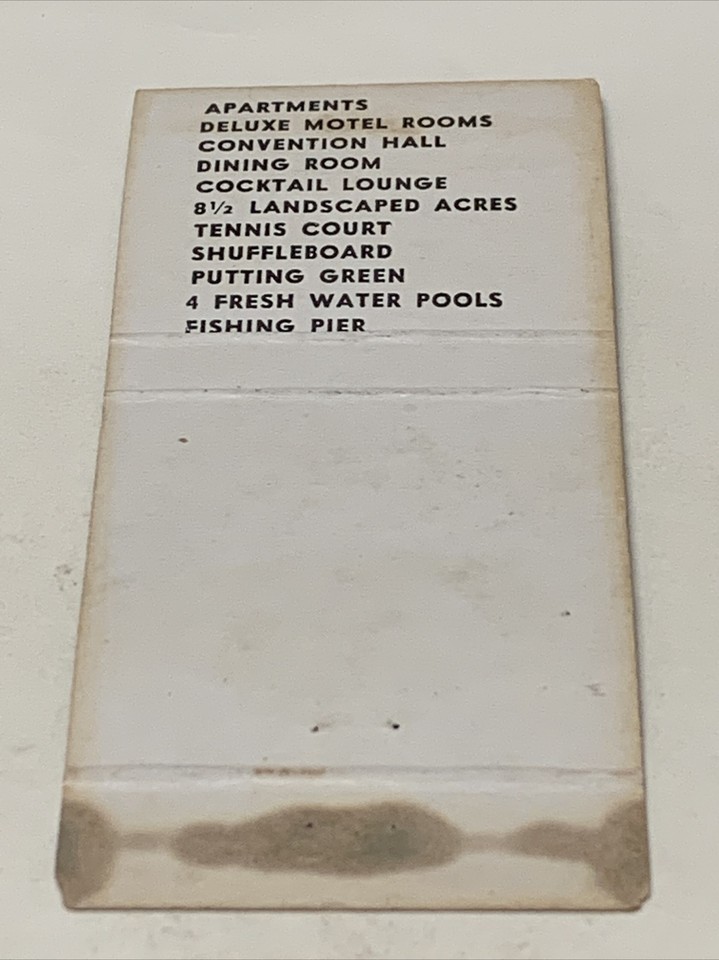 APARTMENTS
DELUXE MOTEL ROOMS
CONVENTION HALL
DINING ROOM
COCKTAIL LOUNGE
8½ LANDSCAPED ACRES
TENNIS COURT
SHUFFLEBOARD
PUTTING GREEN
4 FRESH WATER POOLS
FISHING PIER